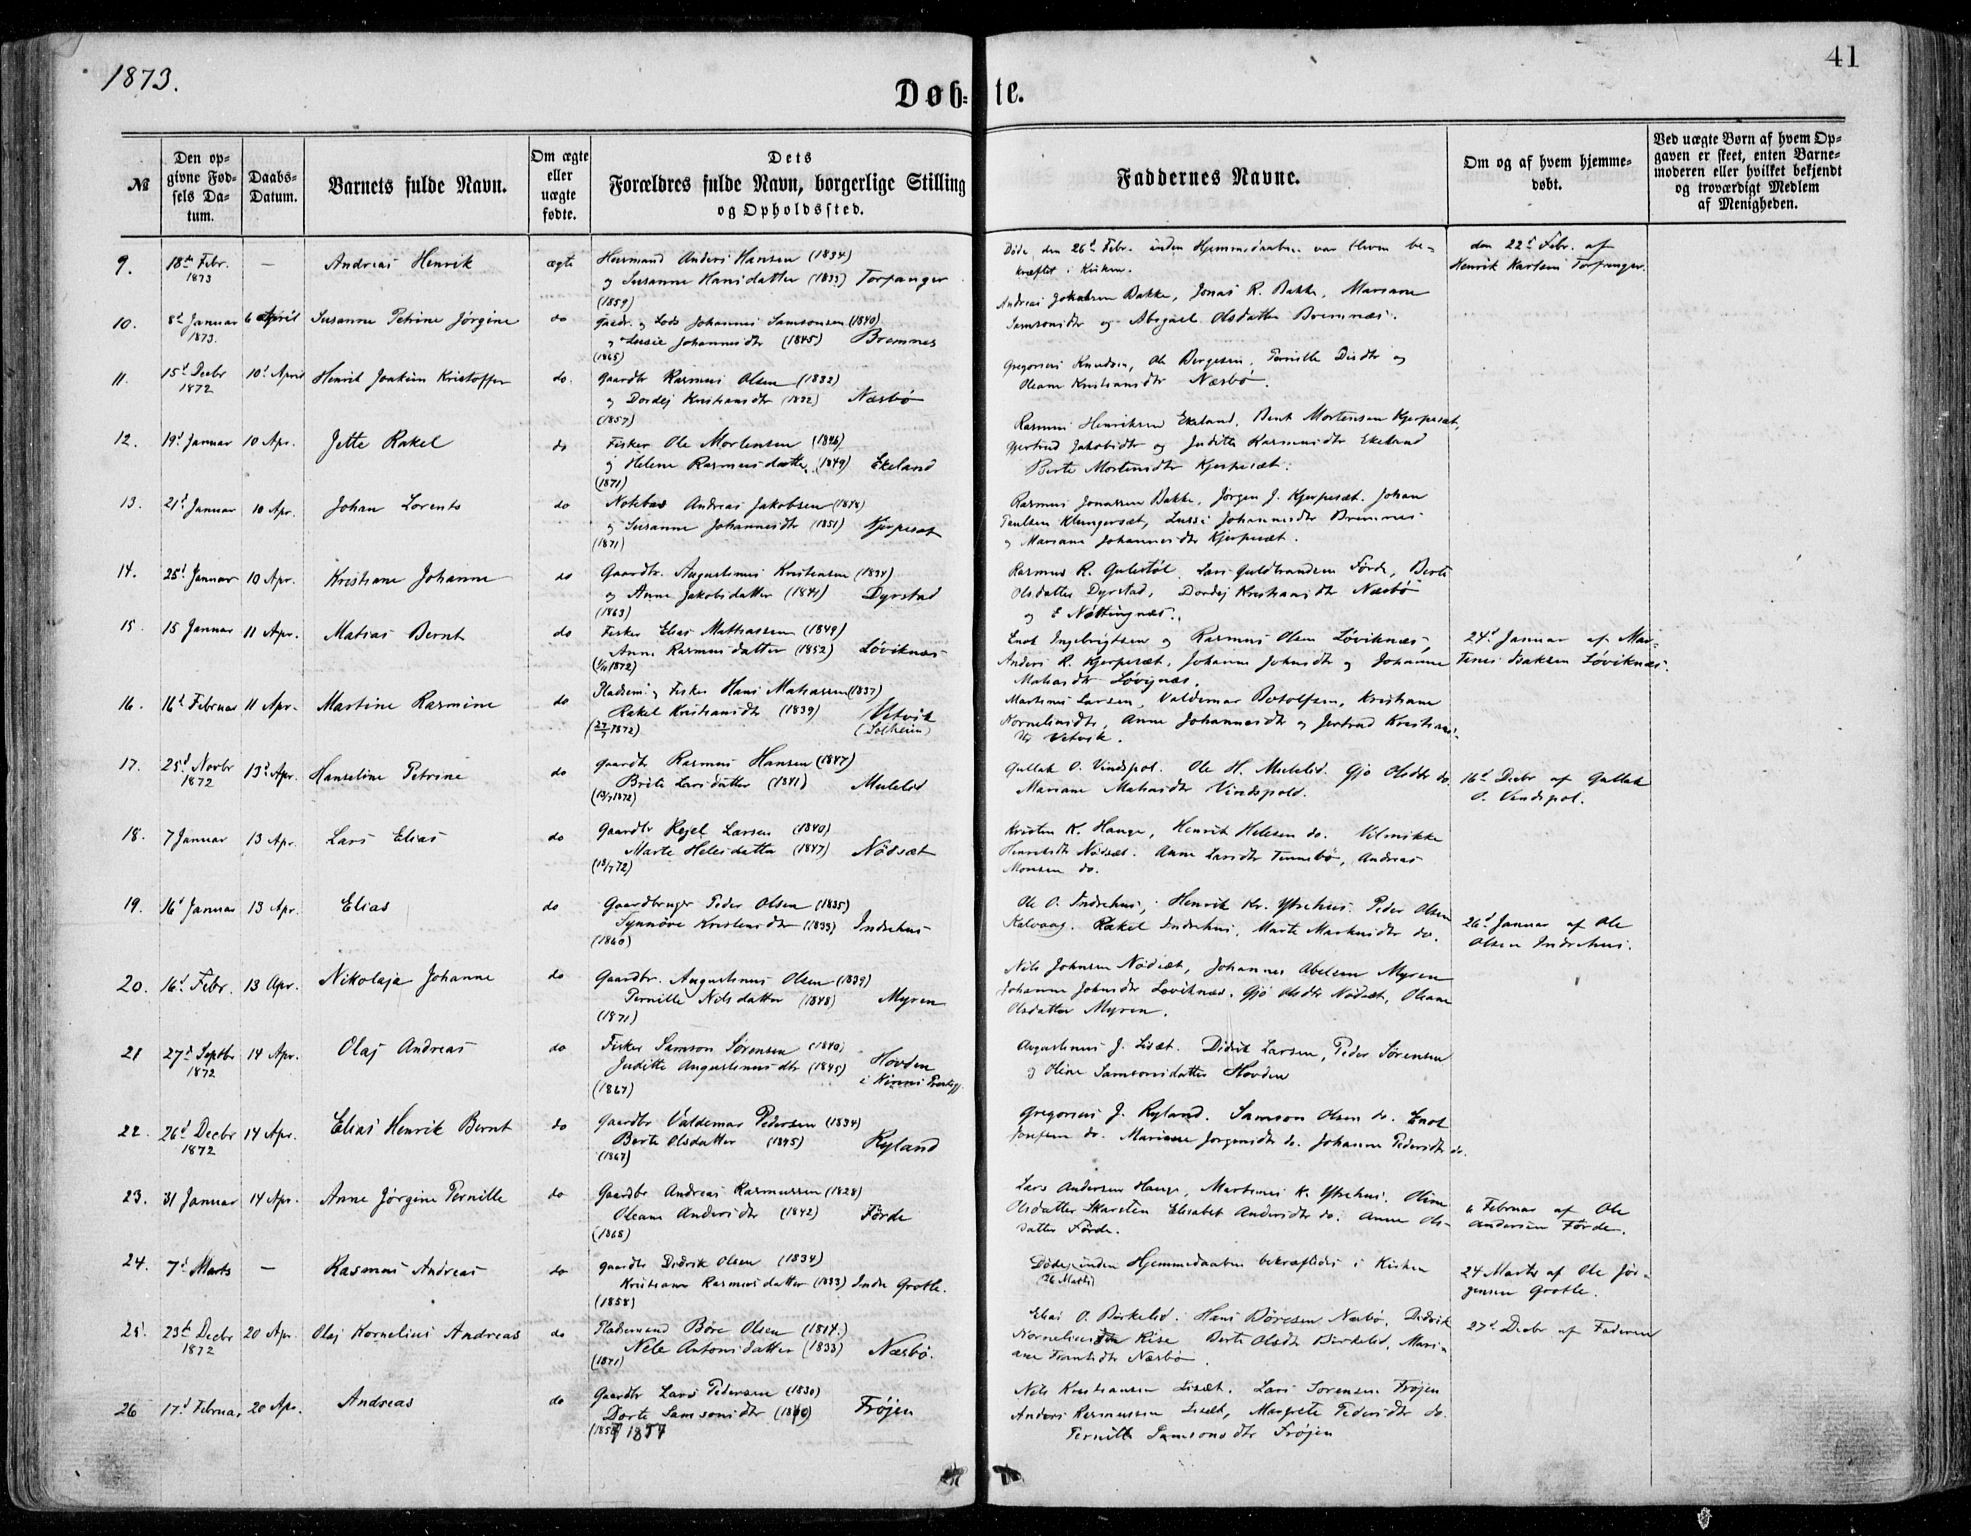 1873.
41
Døb=
te.
№
Den op-
givne Fød-
sels Da-
tum.
Daabs-
Datum.
Barnets fulde Navn.
Om ægte
eller
uægte
fødte.
Dets
Forældres fulde Navn, borgerlige Stilling
og Opholdssted.
Faddernes Navne.
Om og af hvem hjemme-
døbt.
Ved uægte Børn af hvem Op-
gaven er skeet, enten Barne-
moderen eller hvilket bekjendt
og troværdigt Medlem
af Menigheden.
9. 18de Febr. 1873 — Andreas Henrik ægte
Huusmand Anders Hansen (1834)
og Susanne Hansdatter (1833) Torfanger
(1859)
Døde den 26d Febr. inden Hjemmedaaben var bleven be-
kræftet i Kirken.
den 22d Febr. af
Henrik Karlsen Torfanger.
10. 8d Januar 1873. 6 April Susanne Petrine Jørgine do
Gaardr. og Lods Johannes Samsonsen (1840)
og Lussie Johannesdtr (1845) Bremnes
(1865)
Andreas Jakobsen Bakke, Jonas R. Bakke, Mariane
Samsonsdtr og Abigael Olsdatter Bremnæs.
11. 15d Decbr 1872 10d April Henrik Joakim Kristoffer do.
Gaardbr Rasmus Olsen (1832)
og Dordej Kristiansdtr (1832) Næsbø
(1857)
Gregorius Knudsen, Ole Bergesen, Pernille Didtr og
Oleane Kristiansdtr Næsbø.
12. 19d Januar 10 Apr. Jette Rakel do
Fisker Ole Mortensen (1846)
og Helene Rasmusdatter (1849) Ekeland
(1871)
Rasmus Henriksen Ekeland, Bent Mortensen Kjerpesæt,
Gjertrud Jakobsdtr og Juditte Rasmusdtr Ekeland
Berte Mortensdtr Kjerpesæt.
13. 21d Januar 10 Apr. Johan Lorents do
Notebas Andreas Jakobsen (1848)
og Susanne Johannesdtr (1851) Kjerpesæt
(1871)
Rasmus Jonassen Bakke, Jørgen J. Kjerpesæt. Johan
Paulsen Klungersæt, Lussi Johannesdtr Bremnes
og Mariane Johannesdtr Kjerpesæt.
14. 25d Januar 10 Apr. Kristiane Johanne do
Gaardbr. Augustinus Kristensen (1834)
og Anne Jakobsdatter (1841) Dyrstad
(1863)
Rasmus R. Gulestøl. Lars Guldbrandsen Førde, Berte
Olsdatter Dyrstad, Dordej Kristiansdtr Næsbø
og E Nøttingnæs.
15. 15 Januar 11 Apr. Matias Bernt do
Fisker Elias Mathiassen (1849)
Anne Rasmusdatter (1852) Løviknæs
Enok Ingebrigtsen og Rasmus Olsen Løviknæs,
Anders R. Kjerpesæt, Johanne Johnsdtr og Johanne
Matiasdtr Løvignæs.
24d Januar af Mar-
tinus Isaksen Løviknæs.
16. 16d Februar 11 Apr. Martine Rasmine do
Pladsem. og Fisker Hans Matiassen (1837)
Rakel Kristiansdtr (1839) Vetvik
(27/7 1872) (Solheim)
Martinus Larsen, Valdemar Botolfsen, Kristiane
Kornelinsdtr, Anne Johannesdtr og Jertrud Kristians-
dtr Vetvik.
17. 25d Novbr 1872 13d Apr. Hanseline Petrine do
Gaardbr Rasmus Hansen (1847)
Brite Larsdatter (1841) Mulelid
(13/7 1872)
Gullak O. Vindspol. Ole H. Mulelid. Gjø Olsdtr do.
Mariane Matiasdtr Vindspold.
16d Decbr af Gullak
O. Vindspol.
18. 7 Januar 13 Apr. Lars Elias do
Gaardbr Rejel Larsen (1840)
Marte Helesdatter (1847) Nødsæt
(13/7 72)
Kristen K. Hauge, Henrik Helesen do. Vilmikke
Henriksdtr Nødsæt. Anne Larsdtr Tennebø, Andreas
Monsen do.
19. 16d Januar 13 Apr. Elias do
Gaardbruger Peder Olsen (1835)
Synnøve Kristensdtr (1833) Indrehus
(1860)
Ole O. Indrehus, Henrik Kr. Ytrehus. Peder Olsen
Kalvaag. Rakel Indrehus, Marte Markusdtr do.
26d Januar af Ole
Olsen Indrehus.
20. 16d Febr. 13 Apr. Nikolaja Johanne do
Gaardbr. Augustinus Olsen (1839)
Pernille Nilsdatter (1848) Myren
(1871)
Nils Johnsen Nødsæt, Johannes Abelsen Myren
Johanne Johnsdtr Løviknæs. Gjø Olsdtr Nødsæt, Oleane
Olsdatter Myren.
21 27d Septbr 1872 14 Apr. Olaj Andreas do
Fisker Samson Sørensen (1840)
Juditte Augustinusdtr (1845) Hovden
(1867) i Kinns Prestegj.
Augustinus J. Lisæt. Didrik Larsen, Peder Sørensen
og Oline Samsonsdatter Hovden
22. 26d Decbr 1872 14 Apr. Elias Henrik Bernt do
Gaardbr Valdemar Pedersen (1834)
Berte Olsdatter (1845) Ryland
(1867)
Gregorius J. Ryland. Samson Olsen do. Enok
Jonsen do. Mariane Jørgensdtr do. Johanne Pedersdtr do.
23. 31 Januar 14 Apr. Anne Jørgine Pernille do
Gaardbr Andreas Rasmussen (1828)
Oleane Andersdtr (1842) Førde
(1868)
Lars Andersen Hauge, Martinus K. Ytrehus. Oline
Olsdatter Skarsten Elisabet Andersdtr do. Anne Ols-
datter Førde.
6 Februar af Ole
Andersen Førde.
24. 7d Marts — Rasmus Andreas do
Gaardbr Didrik Olsen (1834)
Kristiane Rasmusdatter (1833) Indre Grotle.
(1858)
Døde inden Hjemmedaaben bekræftedes i Kirken
24 Marts af Ole Jør-
gensen Grotle.
25. 23de Decbr 1872 20 Apr. Olaj Kornelius Andreas do
Pladsemand Børe Olsen (1814)
Nele Antonsdatter (1833) Næsbø.
(1871)
Elias O. Birkelid. Hans Børesen Næsbø, Didrik
Korneliusen Rise. Berte Olsdtr Birkelid, Mari-
ane Frantsdtr Næsbø.
27d Decbr af Faderen
26 17d Februar 20 Apr. Andreas do
Gaardbr Lars Pedersen (1830)
Dorte Samsonsdtr (1840) Frøjen
1857
Nils Kristiansen Lisæt. Lars Sørensen Frøjen
Anders Rasmussen Lisæt, Margrete Pedersdtr do.
Pernille Samsonsdtr Frøjen